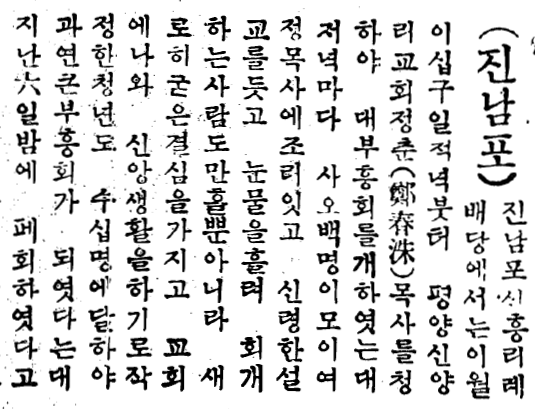 (진남포) 진남포신흥리례
배당에서는이월
이십구일적녁붓허 평양신양
리교회정춘(鄭春洙)목사를청
하야 대부흥회를개하엿는대
저녁마다 사오백명이모이여
정목사에조리잇고 신령한설
교를듯고 눈물을흘려 회개
하는사람도만흘뿐아니라 새
로히굳은결심을가지고 교회
에나와 신앙생활을하기로작
정한청년도 수십명에달하야
과연큰부흥회가 되엿다는대
지난六일밤에 폐회하엿다고